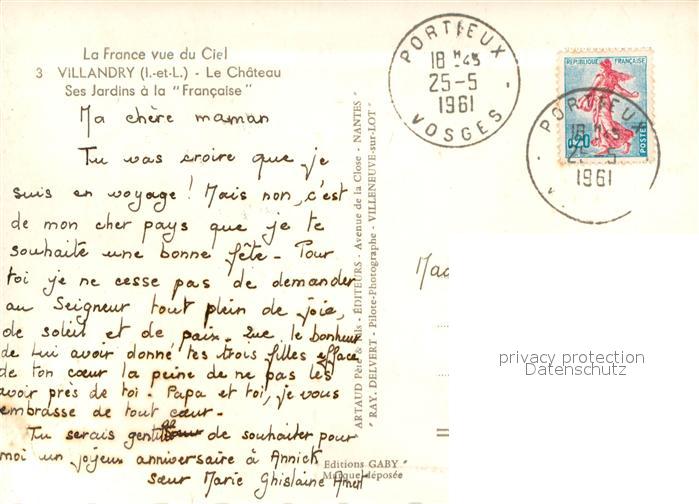 La France vue du Ciel
3 VILLANDRY (I.-et-L.) - Le Château
Ses Jardins à la "Française"
Ma chère maman
Tu vas croire que je
suis en voyage ! Mais non, c'est
de mon cher pays que je te
souhaite une bonne fête - Pour
toi je ne cesse pas de demander
au Seigneur tout plein de joie,
de soleil et de paix. Que le bonheur
de Lui avoir donné tes trois filles efface
de ton cœur la peine de ne pas les
avoir près de toi - Papa et toi, je vous
embrasse de tout cœur -
Tu serais gentille de souhaiter pour
moi un joyeux anniversaire à Annick
sœur Marie Ghislaine
ARTAUD Père & Fils - ÉDITEURS - Avenue de la Close - NANTES
"RAY. DELVERT - Pilote-Photographe - VILLENEUVE-sur-LOT"
Editions GABY
Marque déposée
PORTIEUX
18 H 45
25-5
1961
VOSGES
REPUBLIQUE FRANÇAISE
0,20
POSTES
PORTIEUX
18 H 45
25-5
1961
Mad
privacy protection
Datenschutz